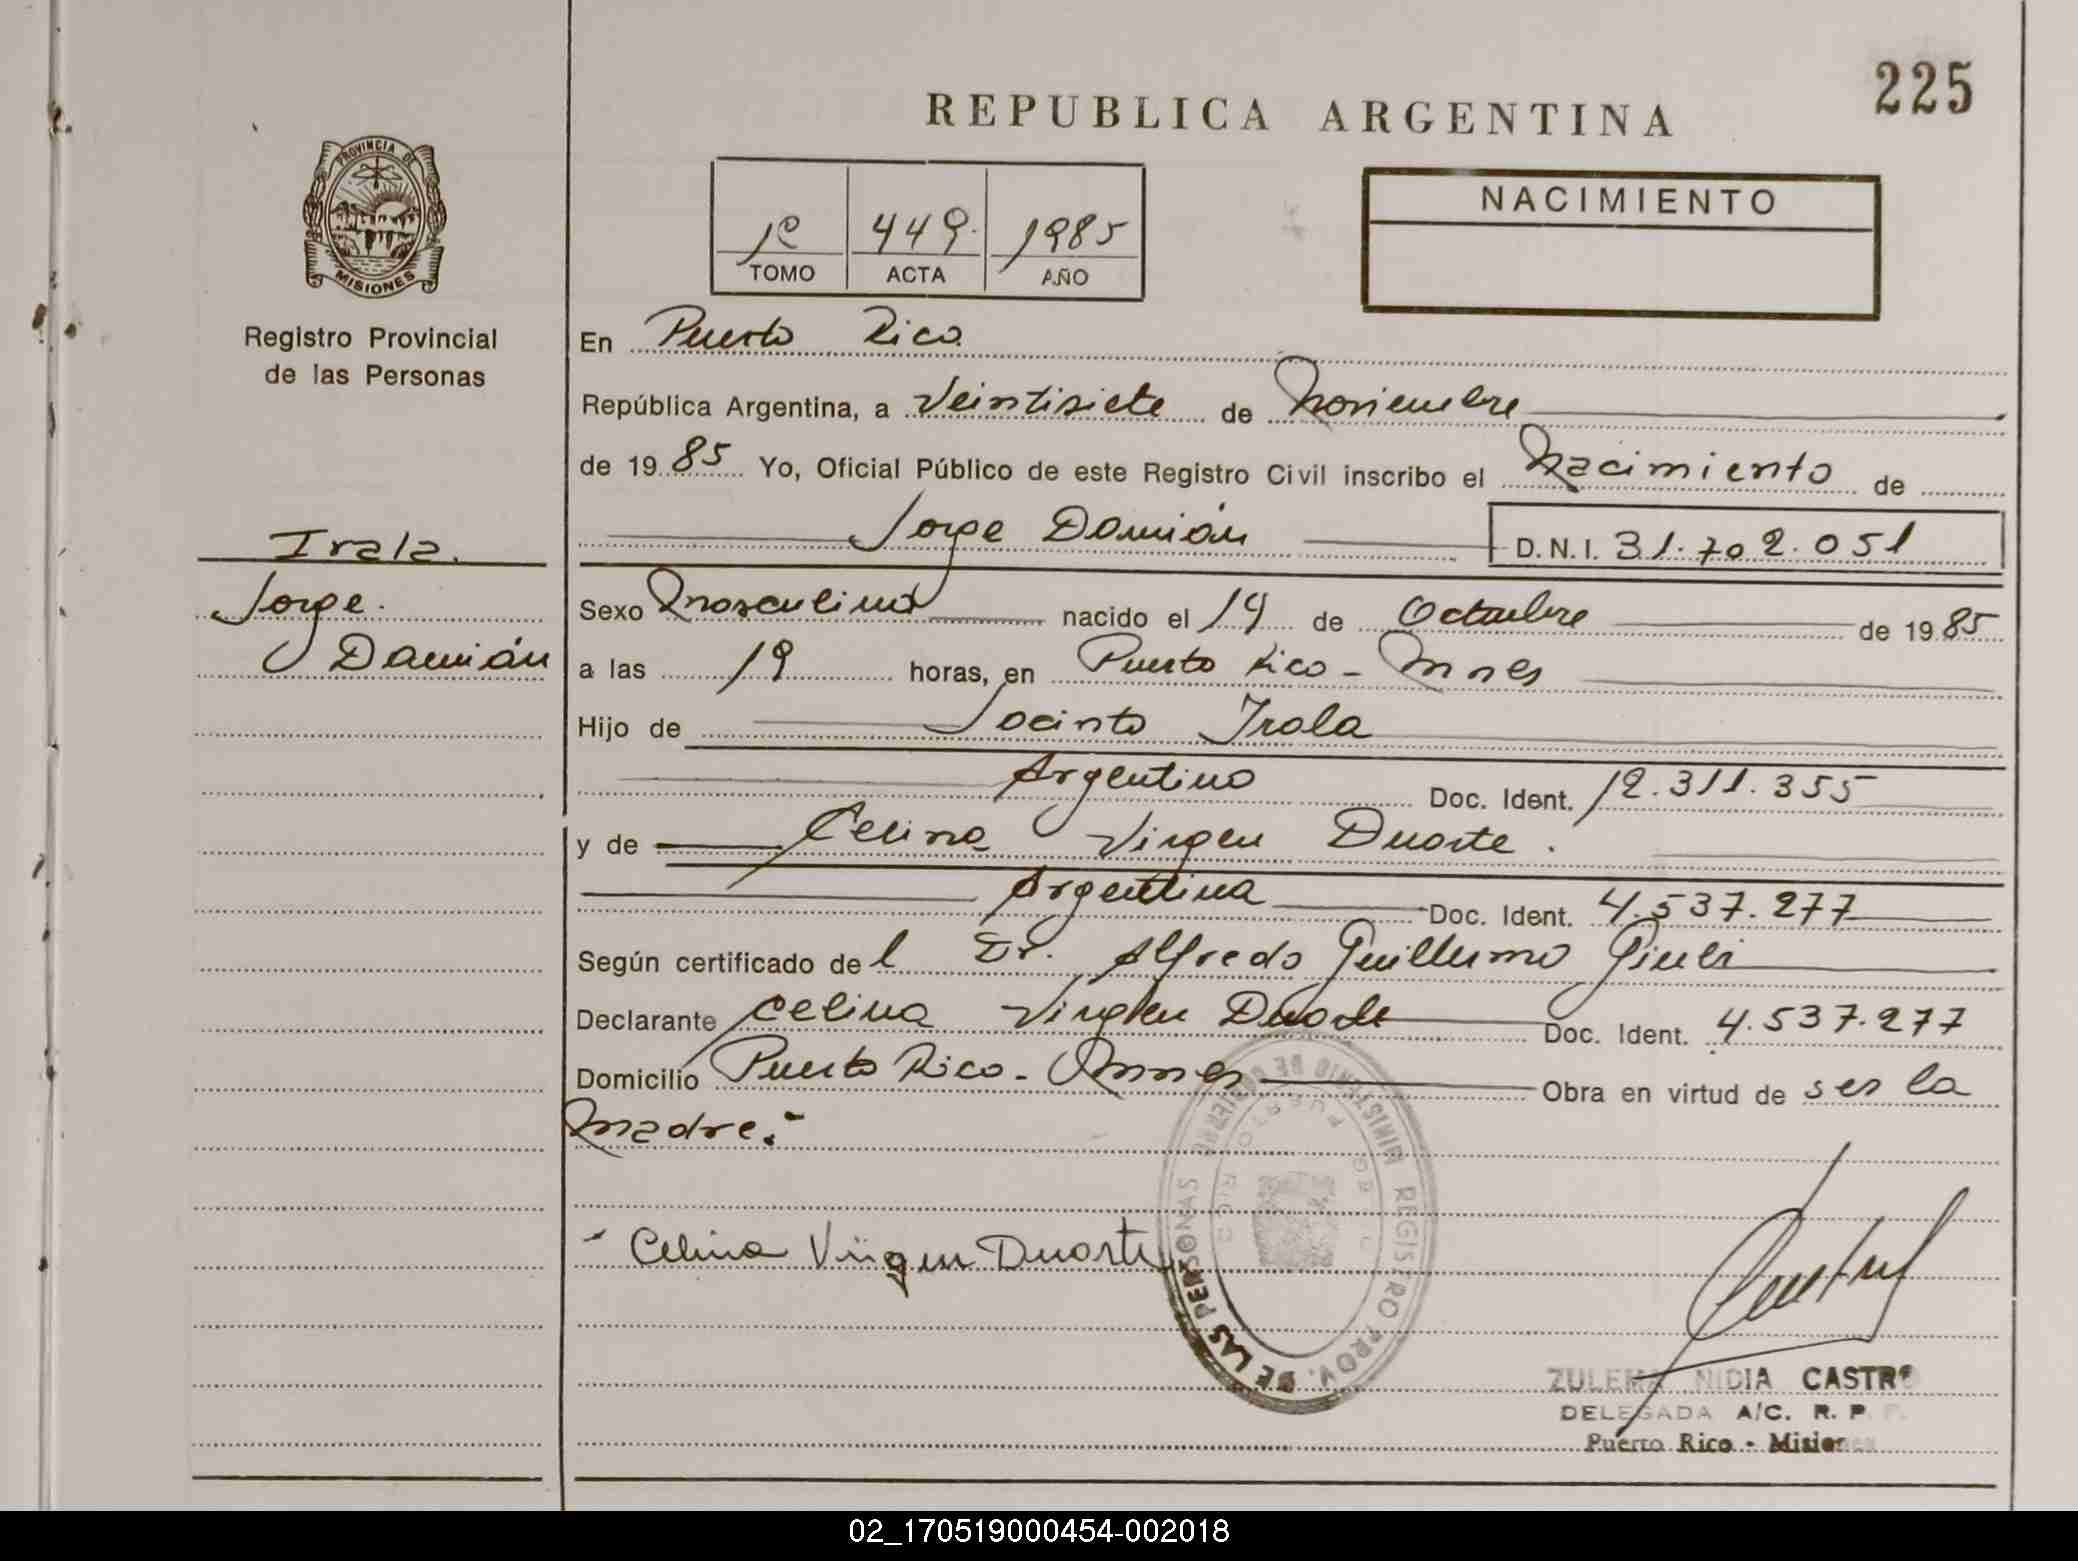 225
REPUBLICA ARGENTINA
PROVINCIA DE
MISIONES
Registro Provincial
de las Personas
1º 449. 1985
TOMO ACTA AÑO
NACIMIENTO
En Puerto Rico.
República Argentina, a Veintisiete de Noviembre
de 1985 Yo, Oficial Público de este Registro Civil inscribo el Nacimiento de
Jorge Damián D.N.I. 31.702.051
Irala.
Jorge.
Damián
Sexo Masculino nacido el 14 de Octubre de 1985
a las 19 horas, en Puerto Rico - Mnes
Hijo de Jacinto Irala
Argentino Doc. Ident. 12.311.355
y de Celina Virgen Duarte.
Argentina Doc. Ident. 4.537.277
Según certificado del Dr. Alfredo Guillermo
Declarante Celina Virgen Duarte Doc. Ident. 4.537.277
Domicilio Puerto Rico - Mnes Obra en virtud de ser la
Madre.-
MINISTERIO DE GOBIERNO
REGISTRO PROV. DE LAS PERSONAS
PUERTO RICO
Celina Virgen Duarte
ZULEMA NIDIA CASTRO
DELEGADA A/C. R. P. P.
Puerto Rico - Misiones
02_170519000454-002018